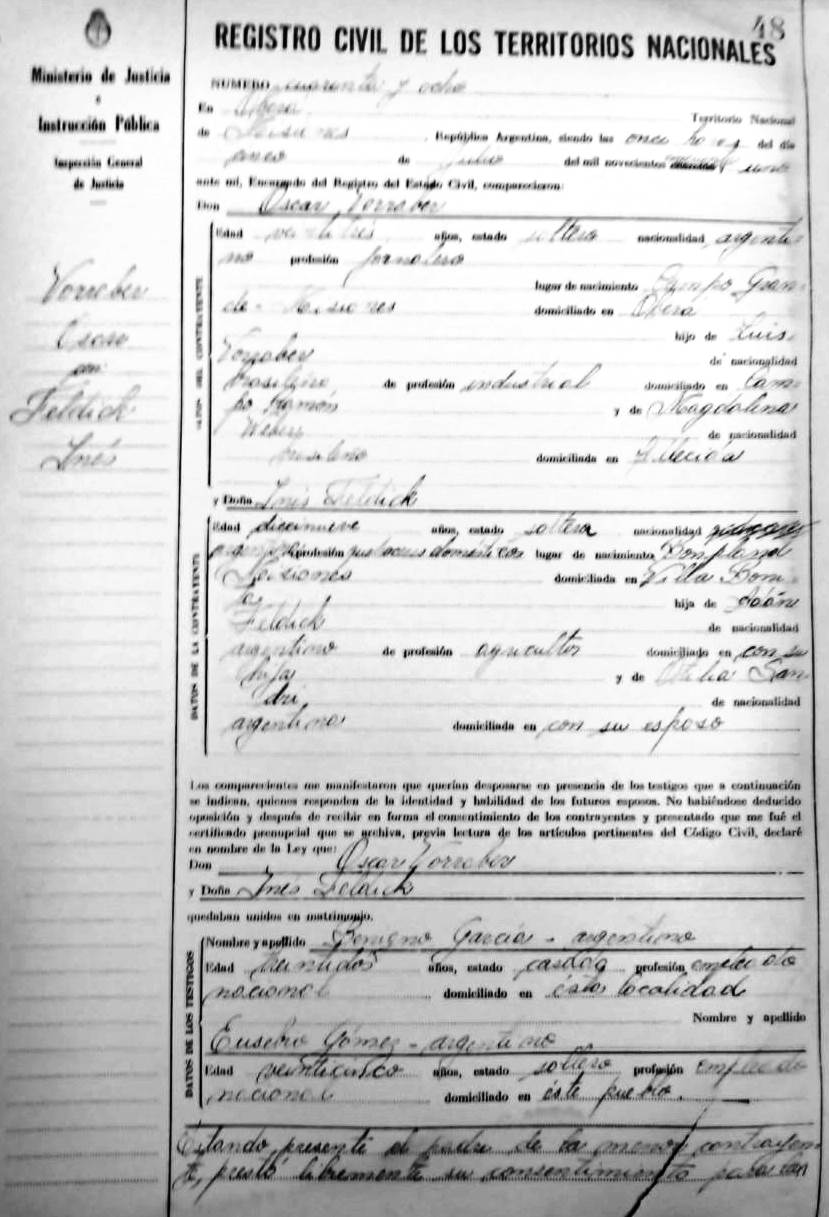 48
REGISTRO CIVIL DE LOS TERRITORIOS NACIONALES
Ministerio de Justicia
e
Instrucción Pública
Inspección General
de Justicia
Vorraber
Oscar
con
Feldick
Inés
NUMERO cuarenta y ocho
En Oberá Territorio Nacional
de Misiones República Argentina, siendo las once horas del día
cinco de Julio del mil novecientos uno
ante mi, Encargado del Registro del Estado Civil, comparecieron:
Don Oscar Vorraber
DATOS DEL CONTRAYENTE
Edad veintitrés años, estado soltero nacionalidad argenti-
no profesión jornalero
lugar de nacimiento Campo Gran-
de - Misiones domiciliado en Oberá
hijo de Luis
Vorraber de nacionalidad
brasileño de profesión industrial domiciliado en Cam-
po Ramón y de Magdalena
Weber de nacionalidad
brasileña domiciliada en
y Doña Inés Feldick
DATOS DE LA CONTRAYENTE
Edad diecinueve años, estado soltera nacionalidad
argentina profesión quehaceres domésticos lugar de nacimiento Bonpland
Misiones domiciliada en Villa Boni-
ta hija de Adán
Feldick de nacionalidad
argentino de profesión agricultor domiciliado en con su
hija y de Otilia San-
dri de nacionalidad
argentina domiciliada en con su esposo
Los comparecientes me manifestaron que querían desposarse en presencia de los testigos que a continuación
se indican, quienes responden de la identidad y habilidad de los futuros esposos. No habiéndose deducido
oposición y después de recibir en forma el consentimiento de los contrayentes y presentado que me fué el
certificado prenupcial que se archiva, previa lectura de los artículos pertinentes del Código Civil, declaré
en nombre de la Ley que:
Don Oscar Vorraber
y Doña Inés Feldick
quedaban unidos en matrimonio.
DATOS DE LOS TESTIGOS
Nombre y apellido Benigno García - argentino
Edad treintidós años, estado casado profesión empleado
nacional domiciliado en ésta localidad
Nombre y apellido
Eusebio Gómez - argentino
Edad veinticinco años, estado soltero profesión empleado
nacional domiciliado en éste pueblo.
Estando presente el padre de la menor contrayen-
te, prestó libremente su consentimiento para tal